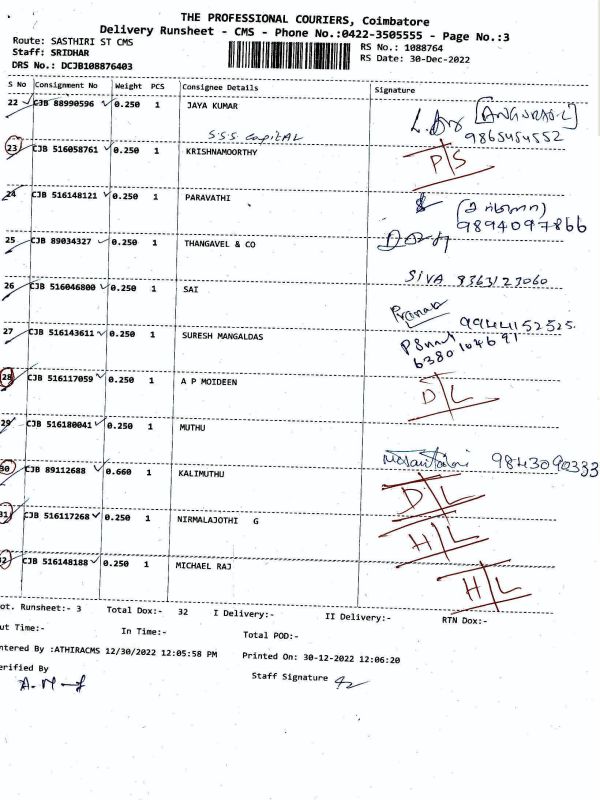 THE PROFESSIONAL COURIERS, Coimbatore
Delivery Runsheet - CMS - Phone No.:0422-3505555 - Page No.:3
Route: SASTHIRI ST CMS
Staff: SRIDHAR
DRS No.: DCJB108876403
RS No.: 1088764
RS Date: 30-Dec-2022
S No Consignment No Weight PCS Consignee Details Signature
22 CJB 88990596 0.250 1 JAYA KUMAR
9865454552
S.S.S capital
23 CJB 516058761 0.250 1 KRISHNAMOORTHY P/S
24 CJB 516148121 0.250 1 PARAVATHI
9894097866
25 CJB 89034327 0.250 1 THANGAVEL & CO
SIVA 8363123060
26 CJB 516046800 0.250 1 SAI
9944152525
27 CJB 516143611 0.250 1 SURESH MANGALDAS
6380104691
28 CJB 516117059 0.250 1 A P MOIDEEN D/L
29 CJB 516180041 0.250 1 MUTHU
9843090333
30 CJB 89112688 0.660 1 KALIMUTHU D/L
31 CJB 516117268 0.250 1 NIRMALAJOTHI G H/L
32 CJB 516148188 0.250 1 MICHAEL RAJ H/L
ot. Runsheet:- 3 Total Dox:- 32 I Delivery:- II Delivery:- RTN Dox:-
ut Time:- In Time:- Total POD:-
ntered By :ATHIRACMS 12/30/2022 12:05:58 PM Printed On: 30-12-2022 12:06:20
erified By Staff Signature